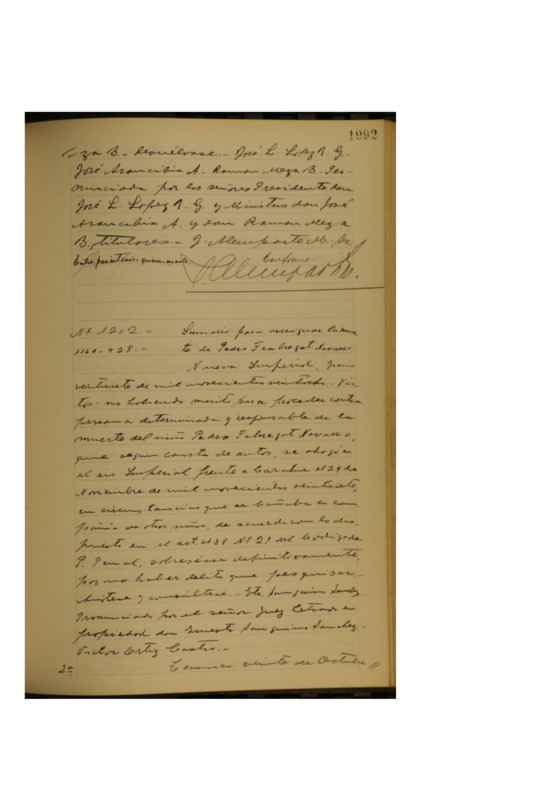 1992
za B.- Devuélvase.- José L. Lopez R. G.
José Arancibia A. Ramon Meza B. Pro-
nunciada por los señores Presidente don
José L. Lopez R. G. y Ministros don José
Arancibia A. y don Ramon Meza
B., titulares.- J. Alemparte M. Sc
Entre paréntesis, queman
Conforme
J. Alemparte M.
Nº 1202.- Sumario para averiguar la muer
1160-928.- te de Pedro Frabregat Navarro
Nueva Imperial, junio
veintisiete de mil novecientos veintiocho. Vis-
tos: no habiendo mérito para proceder contra
persona determinada y responsable de la
muerte del niño Pedro Fabregat Navarro,
que segun consta de autos, se ahogó en
el rio Imperial frente a Carahue el 29 de
Noviembre de mil novecientos veintisiete,
en circunstancias que se bañaba en com
pañia de otros niños, de acuerdo con lo dis-
puesto en el art. 438 Nº 2º del Codigo de
P. Penal, sobreséase definitivamente,
por no haber delito que pesquisar.-
Anótese y consúltese.- Eto Sanguino Sanchez
Pronunciado por el señor Juez Letrado en
propiedad don Ernesto Sanguino Sanchez.-
Victor Ortiz Castro.-
2º Temuco, veinte de Octubre